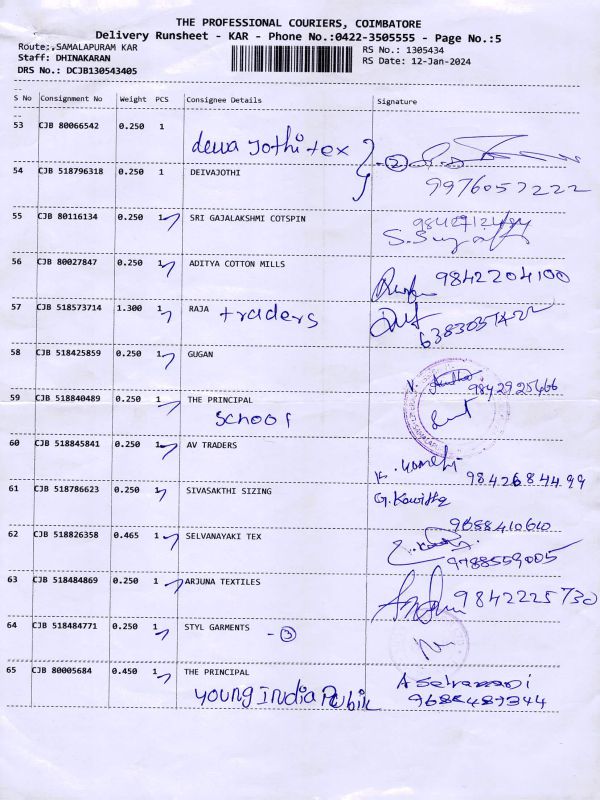 THE PROFESSIONAL COURIERS, COIMBATORE
Delivery Runsheet - KAR - Phone No.:0422-3505555 - Page No.:5
Route:,SAMALAPURAM KAR
RS No.: 1305434
Staff: DHINAKARAN
RS Date: 12-Jan-2024
DRS No.: DCJB130543405
S No Consignment No Weight PCS Consignee Details Signature
53 CJB 80066542 0.250 1
dewa jothi tex
2
54 CJB 518796318 0.250 1 DEIVAJOTHI
9976057222
55 CJB 80116134 0.250 1 SRI GAJALAKSHMI COTSPIN
56 CJB 80027847 0.250 1 ADITYA COTTON MILLS
9842204100
57 CJB 518573714 1.300 1 RAJA traders
58 CJB 518425859 0.250 1 GUGAN
9842925666
59 CJB 518840489 0.250 1 THE PRINCIPAL
school
60 CJB 518845841 0.250 1 AV TRADERS
9842684499
61 CJB 518786623 0.250 1 SIVASAKTHI SIZING
G. Kavitha
9688410610
62 CJB 518826358 0.465 1 SELVANAYAKI TEX
9788559005
63 CJB 518484869 0.250 1 ARJUNA TEXTILES
9842225730
64 CJB 518484771 0.250 1 STYL GARMENTS - 3
65 CJB 80005684 0.450 1 THE PRINCIPAL
young India Pubik
9688487344